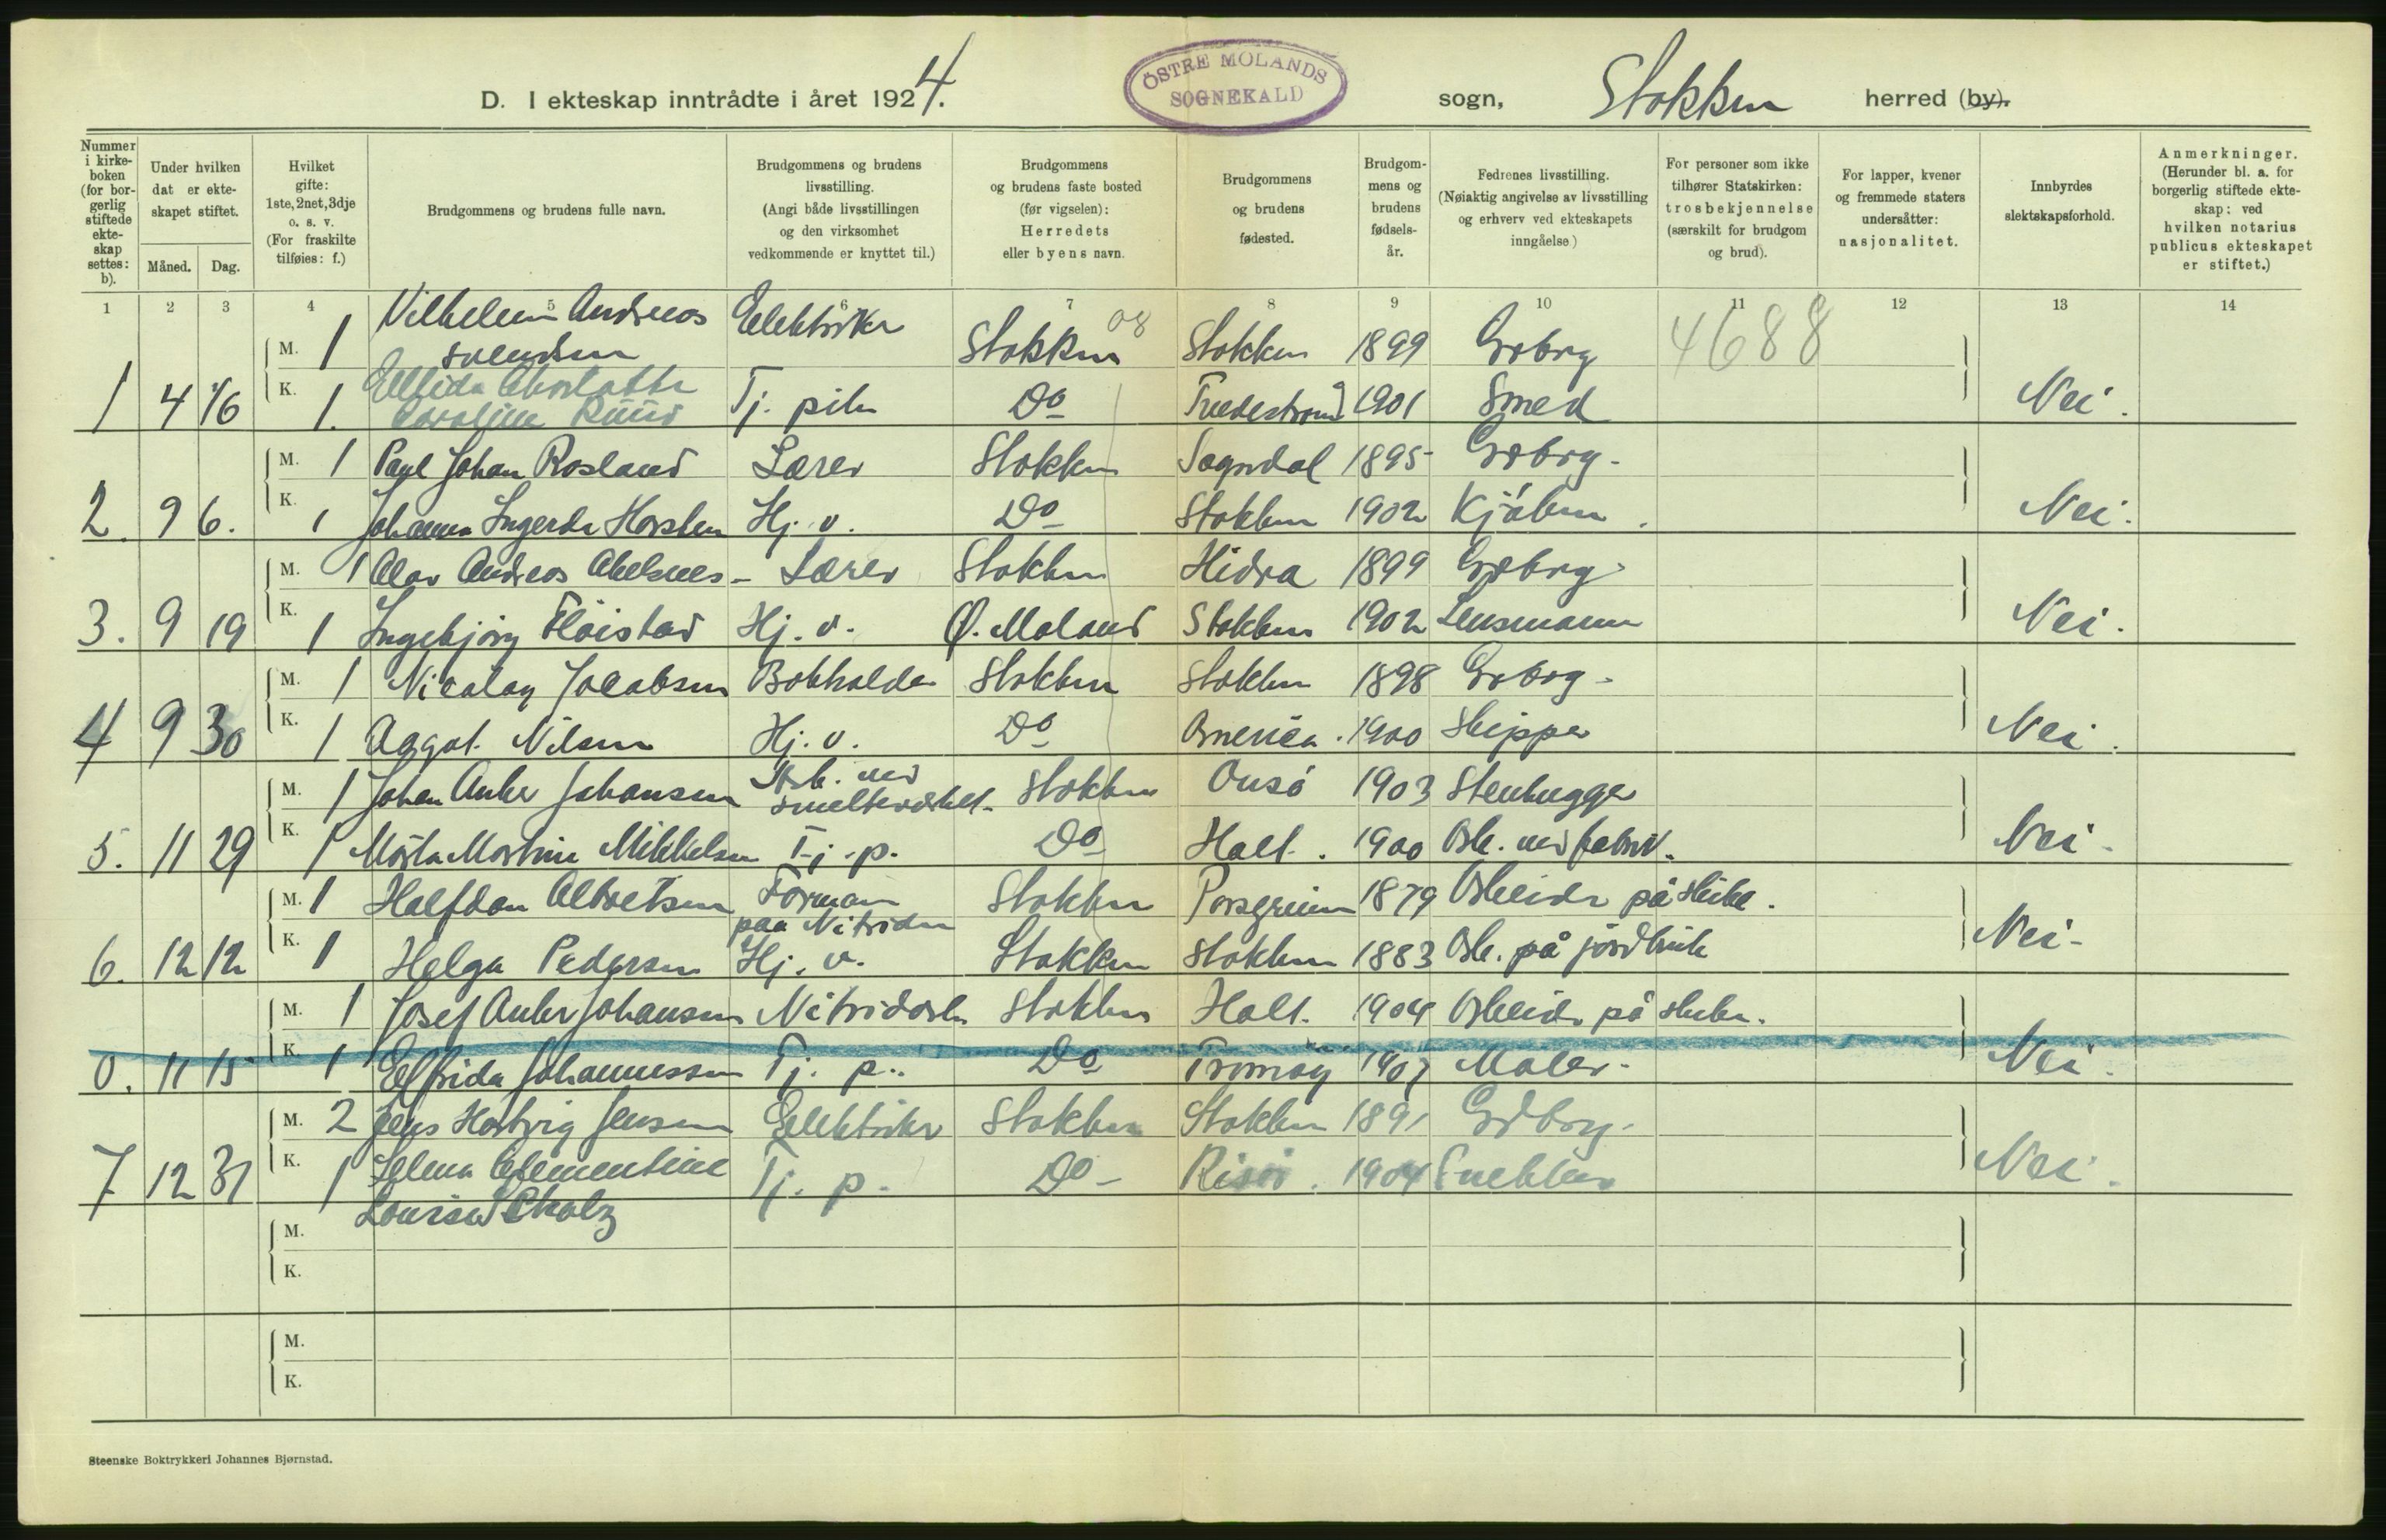 D. I ekteskap inntrådte i året 1924.
ÖSTRE MOLANDS SOGNEKALD
sogn, Stokken herred (by).
Nummer i kirkeboken (for borgerlig stiftede ekteskap settes: b).
Under hvilken dat er ekteskapet stiftet.
Måned. Dag.
Hvilket gifte: 1ste, 2net, 3dje o. s. v. (For fraskilte tilføies: f.)
Brudgommens og brudens fulle navn.
Brudgommens og brudens livsstilling. (Angi både livsstillingen og den virksomhet vedkommende er knyttet til.)
Brudgommens og brudens faste bosted (før vigselen): Herredets eller byens navn.
Brudgommens og brudens fødested.
Brudgommens og brudens fødselsår.
Fedrenes livsstilling. (Nøiaktig angivelse av livsstilling og erhverv ved ekteskapets inngåelse)
For personer som ikke tilhører Statskirken: trosbekjennelse (særskilt for brudgom og brud).
For lapper, kvener og fremmede staters undersåtter: nasjonalitet.
Innbyrdes slektskapsforhold.
Anmerkninger. (Herunder bl. a. for borgerlig stiftede ekteskap: ved hvilken notarius publicus ekteskapet er stiftet.)
1 2 3 4 5 6 7 8 9 10 11 12 13 14
M. 1 Vilhelm Andreas Svendsen Elektriker Stokken 08 Stokken 1899 Grdbrg 4688
1 4 16 K. 1. Ellida Charlotte Caroline Ruud Tj. pike Do Tvedestrand 1901 Smed Nei.
M. 1 Paul Johan Rosland Lærer Stokken Sogndal 1895 Grdbrg.
2. 9 6. K. 1 Johanna Ingerda Horsken Hj. v. Do Stokken 1902 Kjøbm. Nei.
M. 1 Olav Andreas Abelsnes - Lærer Stokken Hidra 1899 Grdbrg.
3. 9 19 K. 1 Ingebjørg Fløistad Hj. v. Ø. Moland Stokken 1902 Lensmann Nei.
M. 1 Nicolay Jacobsen Bokholder Stokken Stokken 1898 Grdbrg.
4 9 30 K. 1 Aagot Nilsen Hj. v. Do America. 1900 Skipper Nei.
M. 1 Johan Anker Johansen Arb. ved smelteverket. Stokken 1903 Stenhugger
5. 11 29 K. 1 Marta Martine Mikkelsen Tj. p. Do Holt. 1900 Arb. ved fabrik. Nei.
M. 1 Halfdan Albretsen Formann paa Nitriden Stokken Porsgrunn 1879 Arbeider på
6. 12 12 K. 1 Helga Pedersen Hj. v. Stokken Stokken 1883 Arb. på jordbruk Nei-
M. 1 Josef Anker Johansen Nitridarb. Stokken Holt. 1904 Arbeider på
0. 11 15 K. 1 Elfrida Johannessen Tj. p. Do Tromøy 1907 Maler. Nei.
M. 2 Jens Hartvig Jensen Elektriker Stokken Stokken 1891 Grdbrg.
7 12 31 K. 1 Selma Clementine Louise Scholz Tj. p. Do - Risør. 1904 Snekker Nei.
M.
K.
M.
K.
Steenske Boktrykkeri Johannes Bjørnstad.